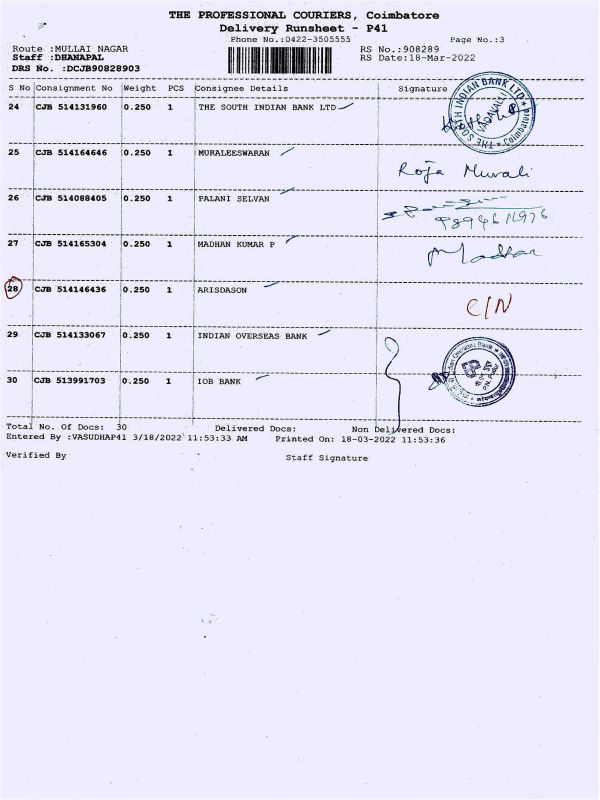 THE PROFESSIONAL COURIERS, Coimbatore
Delivery Runsheet - P41
Phone No.:0422-3505555 Page No.:3
Route :MULLAI NAGAR RS No.:908289
Staff :DHANAPAL RS Date:18-Mar-2022
DRS No. :DCJB90828903
S No Consignment No Weight PCS Consignee Details Signature
24 CJB 514131960 0.250 1 THE SOUTH INDIAN BANK LTD
THE SOUTH INDIAN BANK LTD * Coimbatore *
VADAVALLI
25 CJB 514164646 0.250 1 MURALEESWARAN
Roja Murali
26 CJB 514088405 0.250 1 PALANI SELVAN
9894611976
27 CJB 514165304 0.250 1 MADHAN KUMAR P
Madhan
28 CJB 514146436 0.250 1 ARISDASON
C/N
29 CJB 514133067 0.250 1 INDIAN OVERSEAS BANK
30 CJB 513991703 0.250 1 IOB BANK
Total No. Of Docs: 30 Delivered Docs: Non Delivered Docs:
Entered By :VASUDHAP41 3/18/2022 11:53:33 AM Printed On: 18-03-2022 11:53:36
Verified By Staff Signature